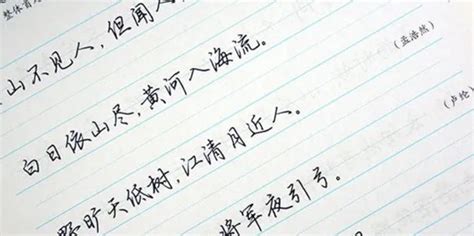 整体首
山不见人，但闻人
白日依山尽，黄河入海流。
野旷天低树，江清月近人。（孟浩然）
将军夜引弓。（卢纶）